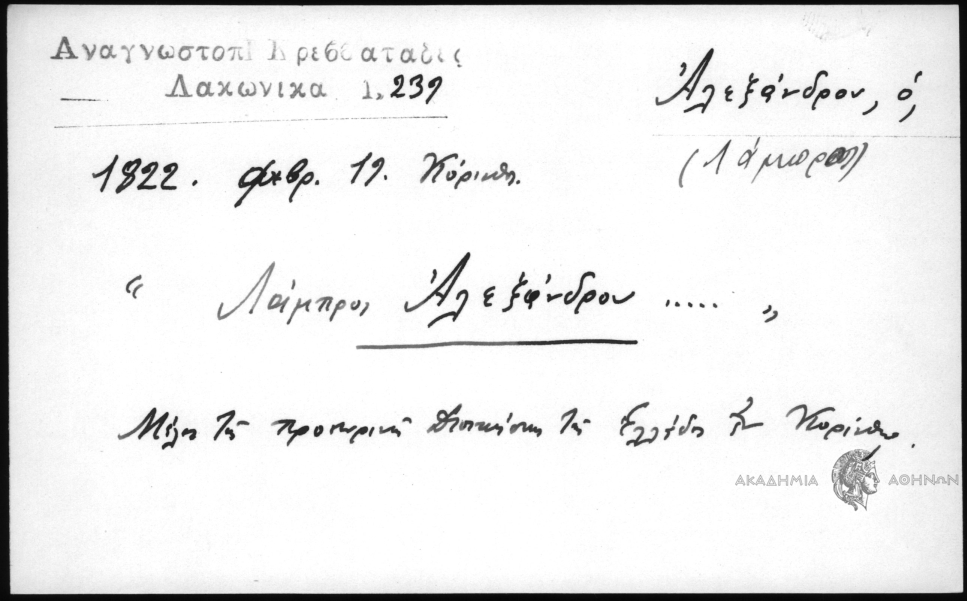 Αναγνωστοπ Κρεββαταδες
Λακωνικα 1, 239
Ἀλεξάνδρου, ὁ,
(Λάμπρος)
1822. Φεβρ. 19. Κόρινθ.
“ Λάμπρος Ἀλεξάνδρου ..... „
Μέλος τῆς προσωρινῆς Διοικήσεως τῆς Ἑλλάδος ἐν Κορίνθῳ.
ΑΚΑΔΗΜΙΑ ΑΘΗΝΩΝ